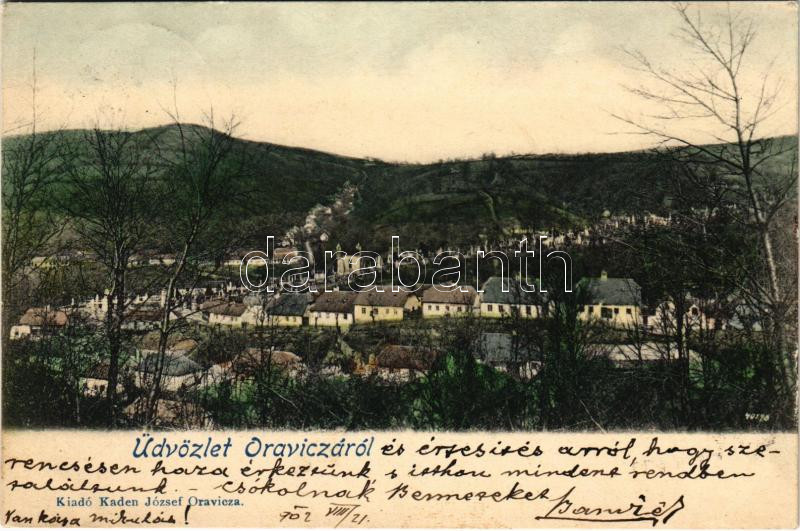 darabanth
40198
Üdvözlet Oraviczáról és értesítés arról, hogy sze-
rencsésen haza érkeztünk s itthon mindent rendben
találtunk. - Csókolnak Benneteket
Kiadó Kaden József Oravicza.
Van kozsa mikulás! 902 VIII/21.